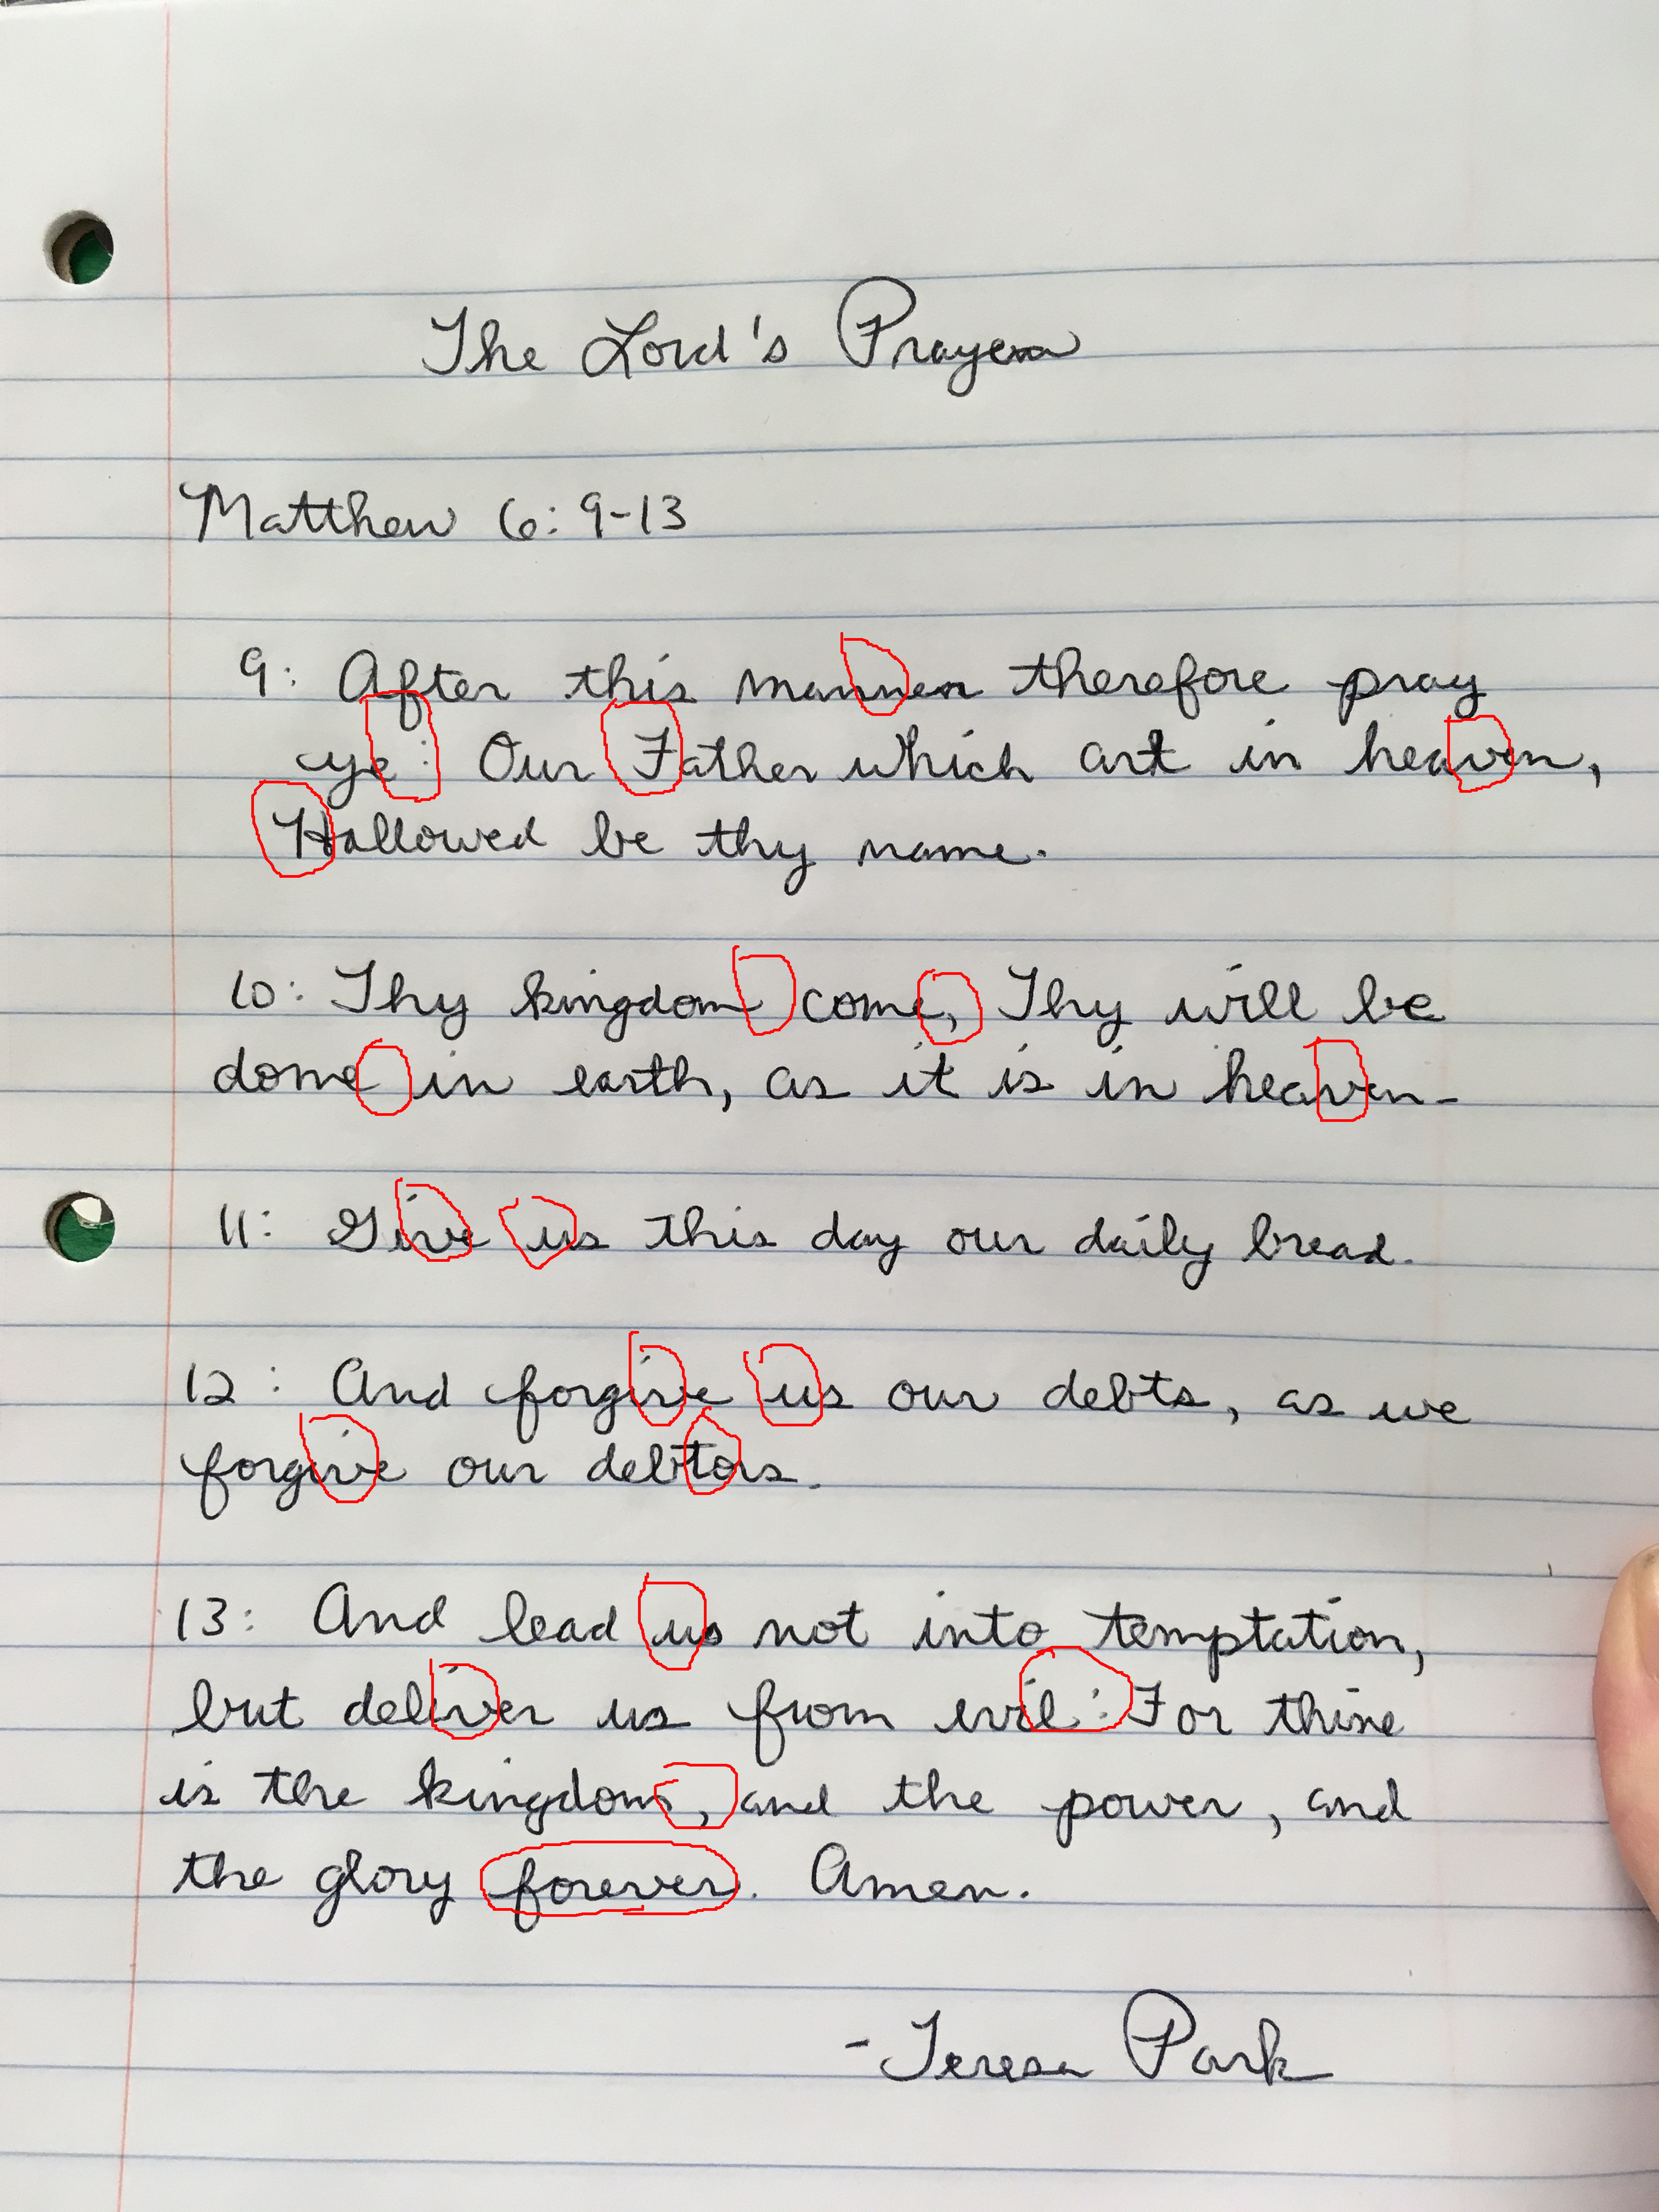 The Lord's Prayer
Matthew 6:9-13
9: After this manner therefore pray
ye: Our Father which art in heaven,
Hallowed be thy name.
10: Thy kingdom come, Thy will be
done in earth, as it is in heaven.
11: Give us this day our daily bread.
12: And forgive us our debts, as we
forgive our debtors.
13: And lead us not into temptation,
but deliver us from evil: For thine
is the kingdom, and the power, and
the glory forever. Amen.
-Teresa Park